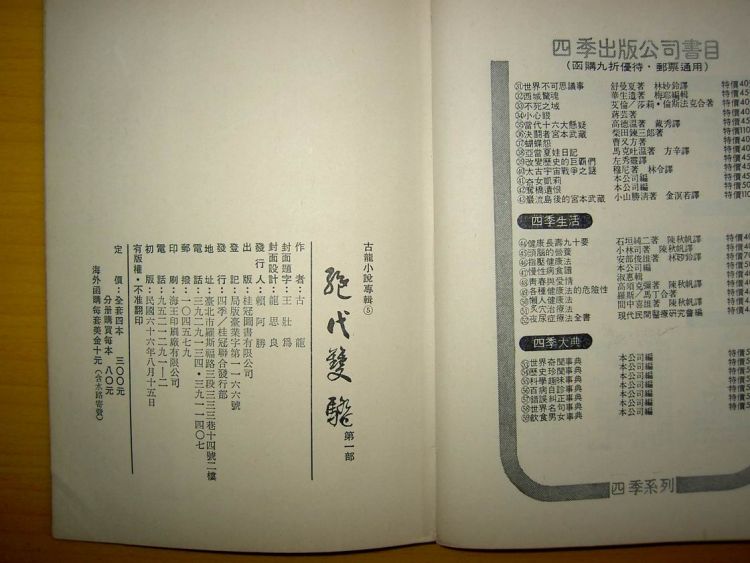 古龍小說專輯⑤
絕代雙驕 第一部
作者：古龍
封面題字：王壯爲
封面設計：龍思良
發行人：賴阿勝
出版：桂冠圖書有限公司
登記：局版臺業字第一一六六號
發行：四季／桂冠聯合發行部
地址：臺北市羅斯福路三段三三三巷十四號二樓
電話：三九二九一三四・三九一一四〇七
郵撥：一〇四五七九
印刷：海王印刷廠有限公司
電話：九五二一二九一—二
初版：民國六十六年八月十五日
有版權・不准翻印
定價：全套四本 三〇〇元
分册購買每本 八〇元
海外函購每套美金十元（含水路寄費）
四季出版公司書目
（函購九折優待・郵票通用）
㉛世界不可思議事 舒曼夏著 林妙鈴譯 特價40
㉜西城驚魂 華生這著 梅耶編輯 特價45
㉝不死之域 艾倫／莎莉・倫斯法克合著 特價
㉞小心眼 蔣芸著 特價40
㉟當代十六大懸疑 高德溫著 戴秀譯 特價45
㊱決鬪者宮本武藏 柴田鍊三郎著 特價
㊲蝴蝶怨 曹又方著 特價40
㊳亞當夏娃日記 馬克吐溫著 方辛譯 特價45
㊴改變歷史的巨霸們 左秀靈譯 特價45
㊵太古宇宙戰爭之謎 穆尼著 林令譯 特價
㊶奇女凱莉 本公司編 特價50
㊷鴛橋遺恨 本公司編 特價50
㊸巖流島後的宮本武藏 小山勝清著 金溟若譯 特價110
四季生活
㊹健康長壽九十要 石垣純二著 陳秋帆譯 特價40
㊺頭腦的營養 小林著 陳秋帆譯 特價
㊻指壓健康法 安部俊雄著 林妙鈴譯 特價
㊼慢性病食譜 本公司編 特價
㊽青春與愛情 淑惠輯 特價
㊾各種健康法的危險性 高明克彌著 陳秋帆譯 特價
㊿懶人健康法 羅斯／馬丁合著 特價
51灸穴治療法 間中喜雄著 陳秋帆譯 特價
52夜尿症療法全書 現代民間醫療研究會編 特價
四季大典
53世界奇聞事典 本公司編 特價
54歷史珍聞事典 本公司編 特價
55科學趣味事典 本公司編 特價
56百病自診事典 本公司編 特價
57錯誤糾正事典 本公司編 特價
58世界名句事典 本公司編 特價
59飲食男女事典 本公司編 特價
四季系列